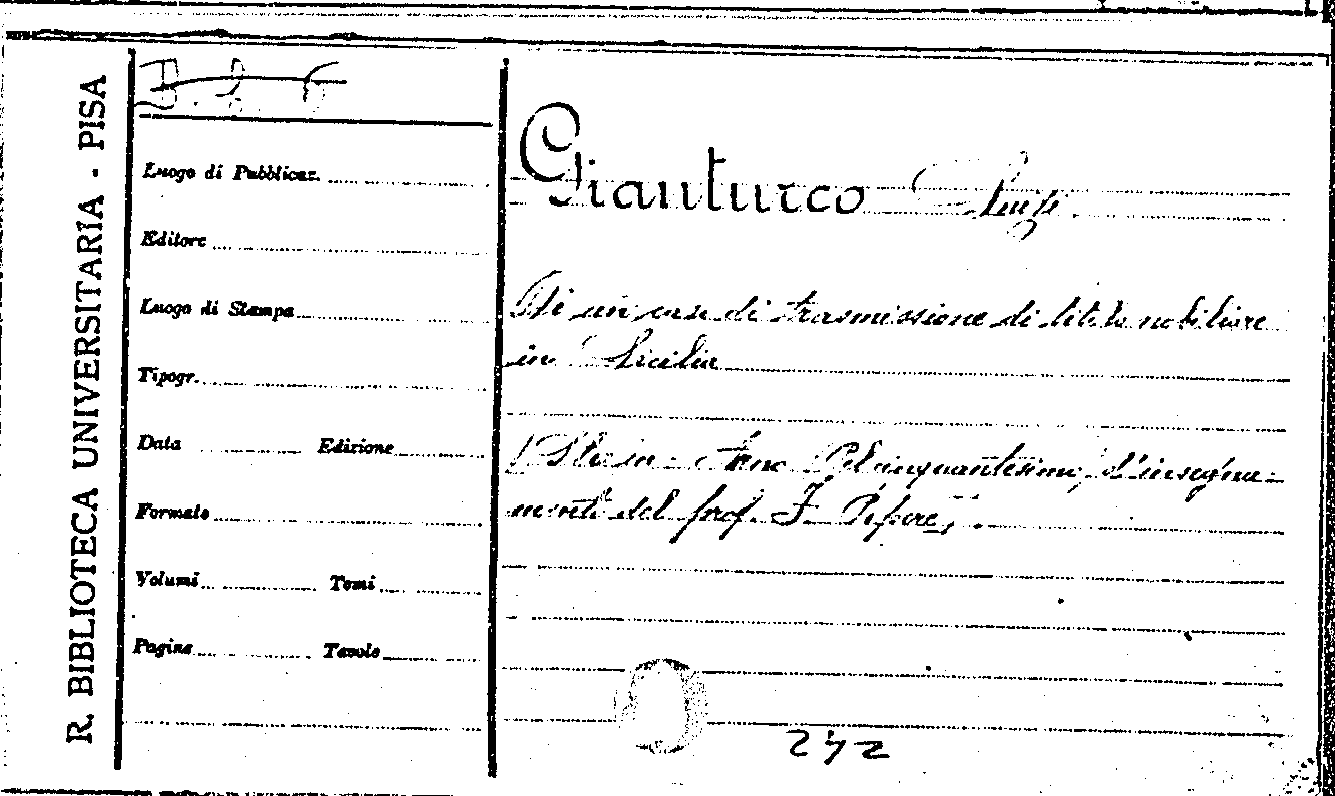 R. BIBLIOTECA UNIVERSITARIA - PISA
B. 2. 6
Luogo di Pubblicaz.
Editore
Luogo di Stampa
Tipogr.
Data Edizione
Formato
Volumi Tomi
Pagine Tavole
Gianturco Luigi
Di un caso di trasmissione di titolo nobiliare
in Sicilia
Pel cinquantesimo d'insegna-
mento del prof. F. Pepere
242